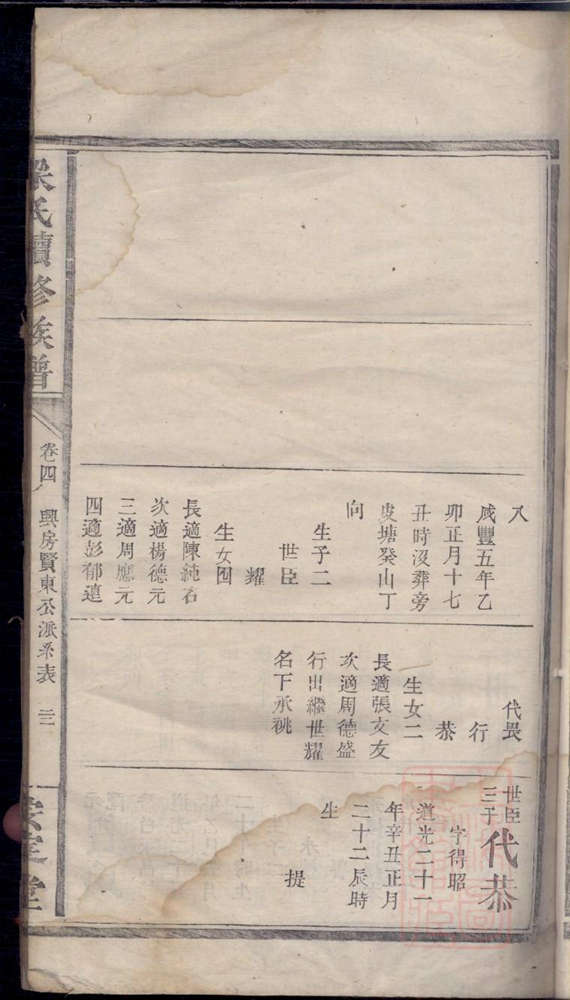 氏續修族譜
卷四
興房賢東公派系表
三
堂
咸豐五年乙
卯正月十七
丑時沒葬旁
塘癸山丁
向
生子二
世臣
耀
生女四
長適陳純石
次適楊德元
三適周應元
四適彭郁遠
代畏
行
恭
生女二
長適張文友
次適周德盛
行出繼世耀
名下承祧
世臣三子
代恭
字得昭
道光二十一
年辛丑正月
二十二辰時
生
提